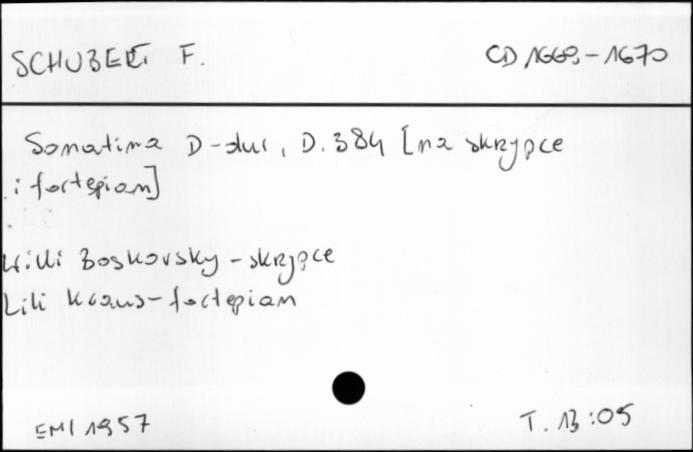 SCHUBERT F. CD 1669-1670
Sonatina D-dur, D.384 [na skrzypce
i fortepian]
Willi Boskovsky - skrzypce
Lili Kraus - fortepian
EMI 1957 T. 13:05